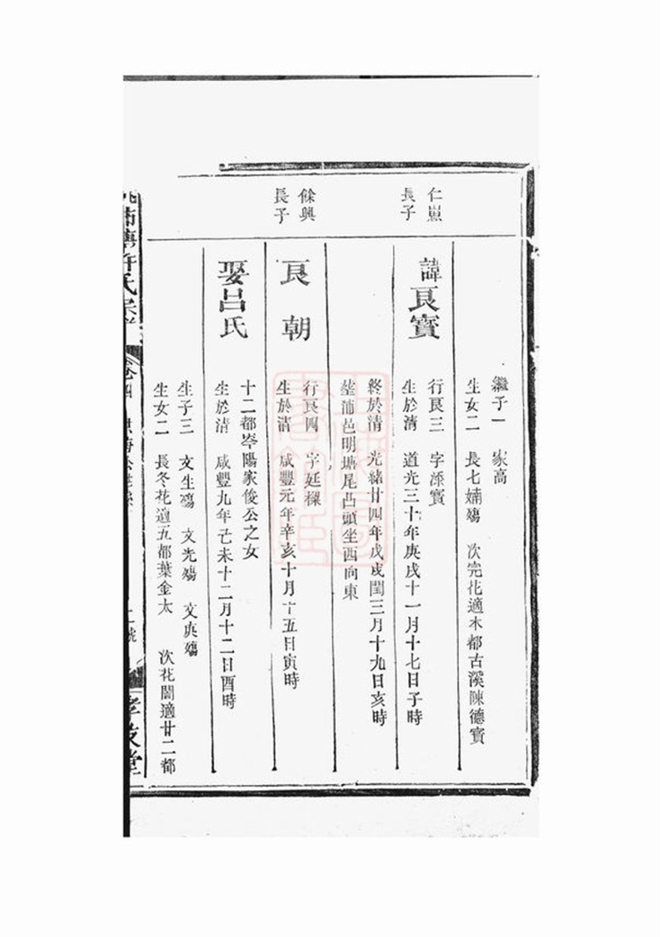 繼子一 家高
生女二 長七婻殤 次完花適本都古溪陳德寶
仁
長子
諱良寶
行良三 字添寶
生於清 道光三十年庚戌十一月十七日子時
終於清 光緒廿四年戊戌閏三月十九日亥時
塟浦邑明塘尾凸頭坐西向東
餘興
長子
良朝
行良四 字廷樑
生於清 咸豐元年辛亥十月十五日寅時
娶呂氏
十二都岑陽家俊公之女
生於清 咸豐九年己未十二月十二日酉時
生子三 文生殤 文光殤 文典殤
生女二 長冬花適五都葉金太 次花閨適廿二都
許氏宗
卷四